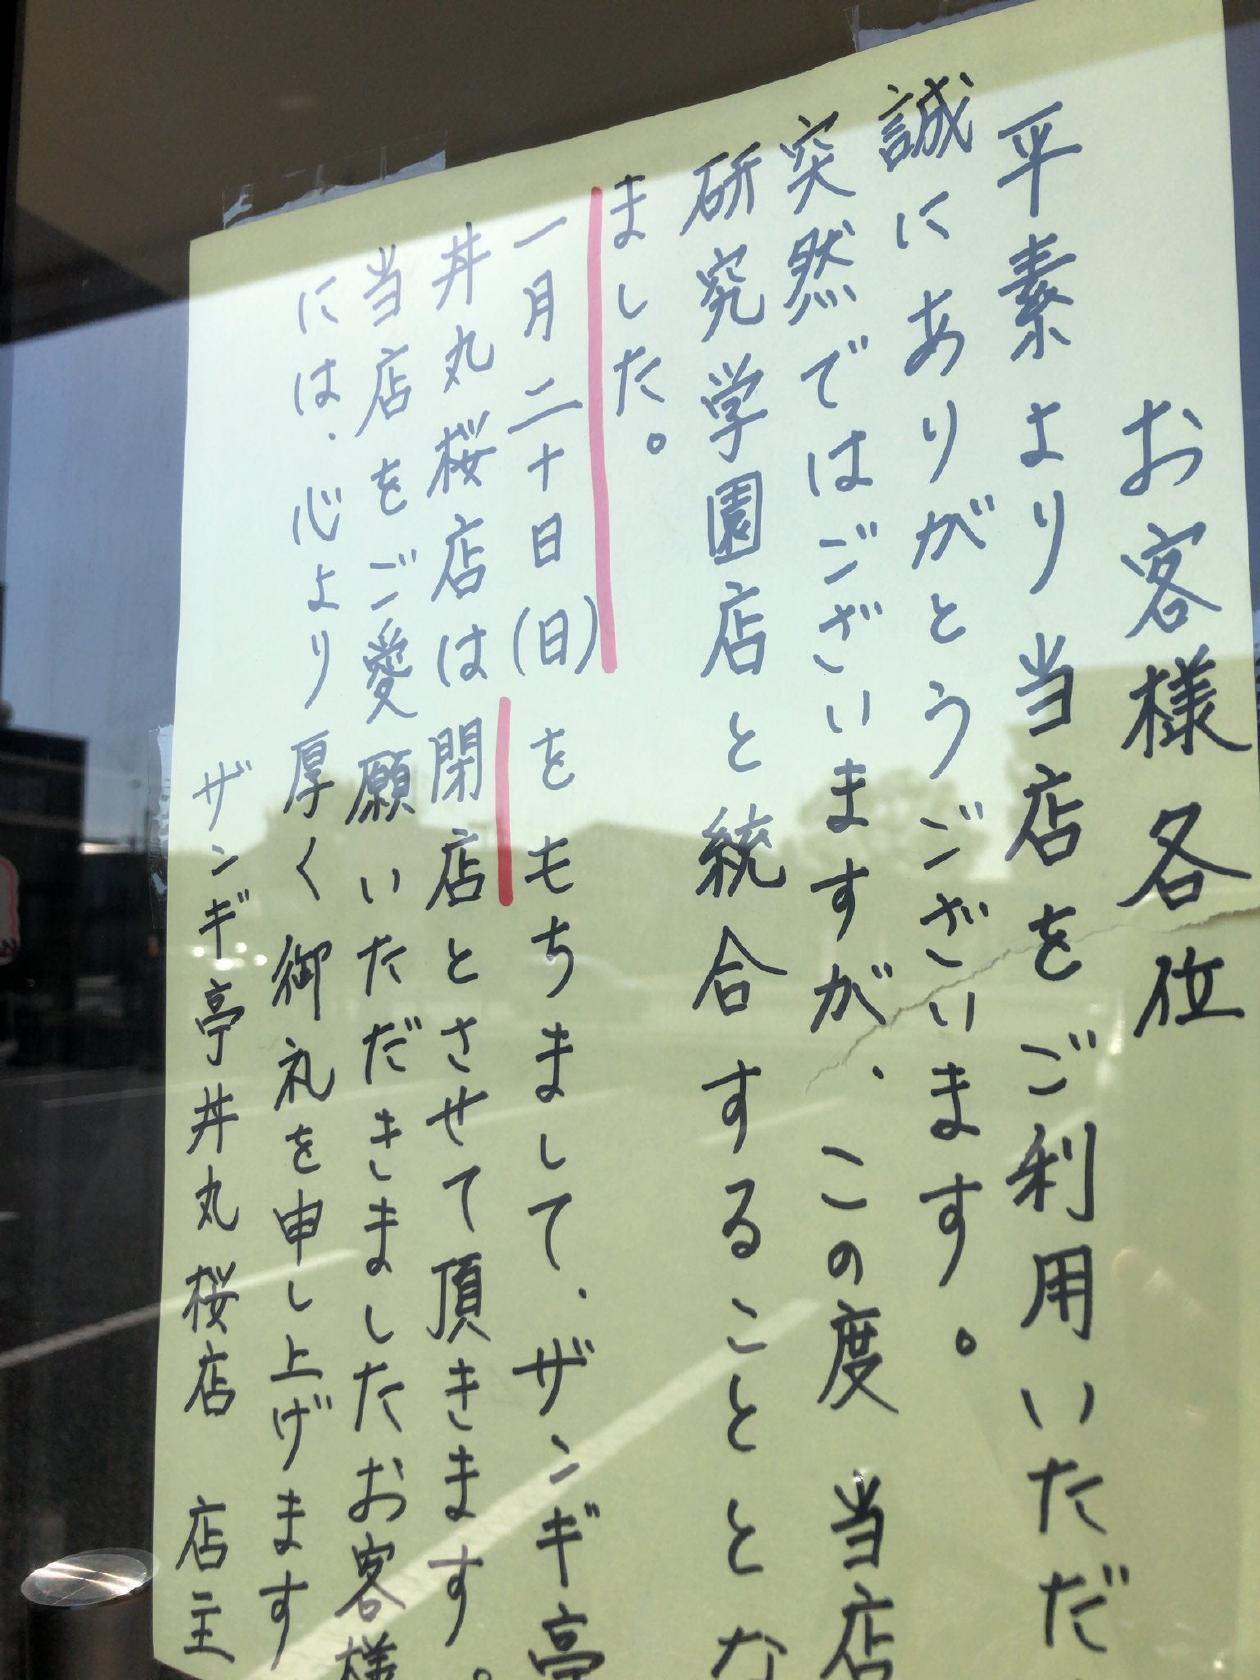 お客様各位
平素より当店をご利用いただ
誠にありがとうございます。
突然ではございますが、この度 当店
研究学園店と統合することとな
ました。
一月二十日(日)をもちまして、ザンギ亭
丼丸桜店は閉店とさせて頂きます。
当店をご愛願いただきましたお客様
には、心より厚く御礼を申し上げます
ザンギ亭丼丸桜店 店主